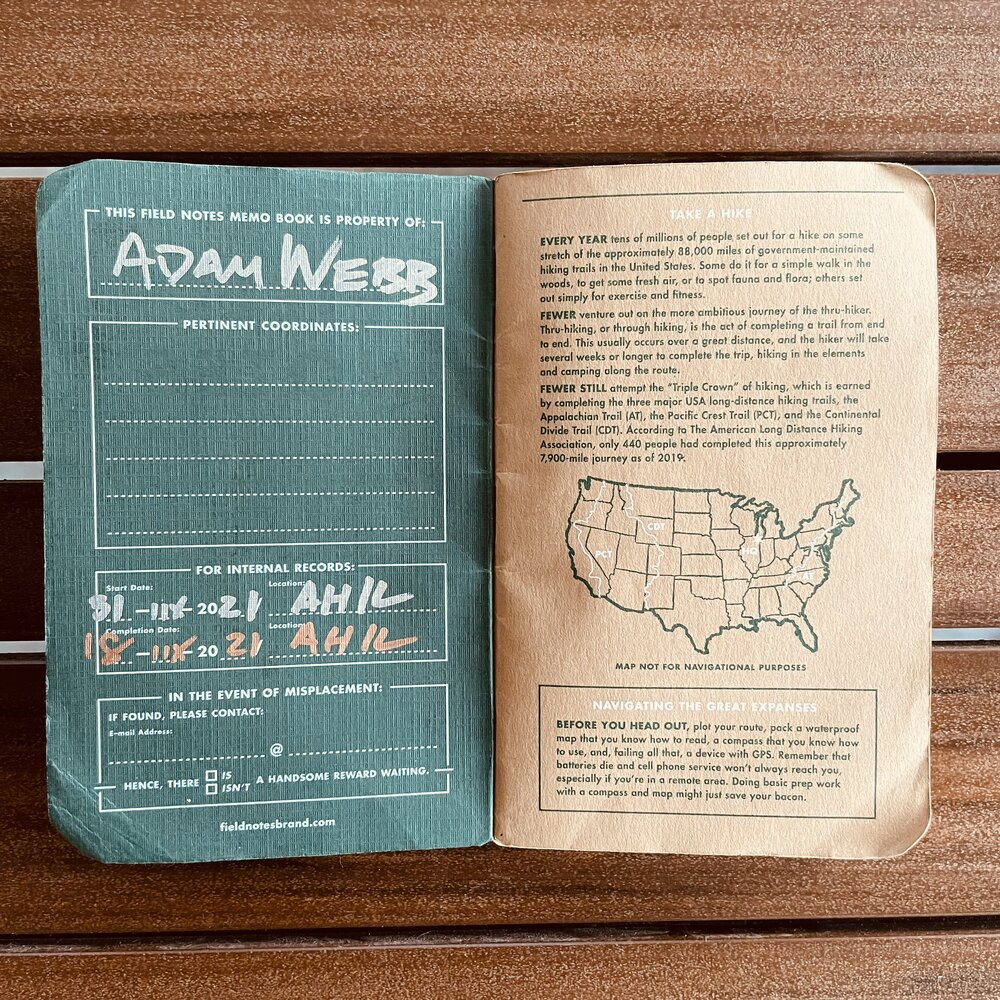 THIS FIELD NOTES MEMO BOOK IS PROPERTY OF:
ADAM WEBB
PERTINENT COORDINATES:
FOR INTERNAL RECORDS:
Start Date: Location:
31 - 2021 AHIL
Completion Date: Location:
18 - 2021 AHIL
IN THE EVENT OF MISPLACEMENT:
IF FOUND, PLEASE CONTACT:
E-mail Address:
@
HENCE, THERE IS A HANDSOME REWARD WAITING.
ISN'T
fieldnotesbrand.com
TAKE A HIKE
EVERY YEAR tens of millions of people set out for a hike on some
stretch of the approximately 88,000 miles of government-maintained
hiking trails in the United States. Some do it for a simple walk in the
woods, to get some fresh air, or to spot fauna and flora; others set
out simply for exercise and fitness.
FEWER venture out on the more ambitious journey of the thru-hiker.
Thru-hiking, or through hiking, is the act of completing a trail from end
to end. This usually occurs over a great distance, and the hiker will take
several weeks or longer to complete the trip, hiking in the elements
and camping along the route.
FEWER STILL attempt the "Triple Crown" of hiking, which is earned
by completing the three major USA long-distance hiking trails, the
Appalachian Trail (AT), the Pacific Crest Trail (PCT), and the Continental
Divide Trail (CDT). According to The American Long Distance Hiking
Association, only 440 people had completed this approximately
7,900-mile journey as of 2019.
CDT
PCT
HQ
AT
MAP NOT FOR NAVIGATIONAL PURPOSES
NAVIGATING THE GREAT EXPANSES
BEFORE YOU HEAD OUT, plot your route, pack a waterproof
map that you know how to read, a compass that you know how
to use, and, failing all that, a device with GPS. Remember that
batteries die and cell phone service won't always reach you,
especially if you're in a remote area. Doing basic prep work
with a compass and map might just save your bacon.